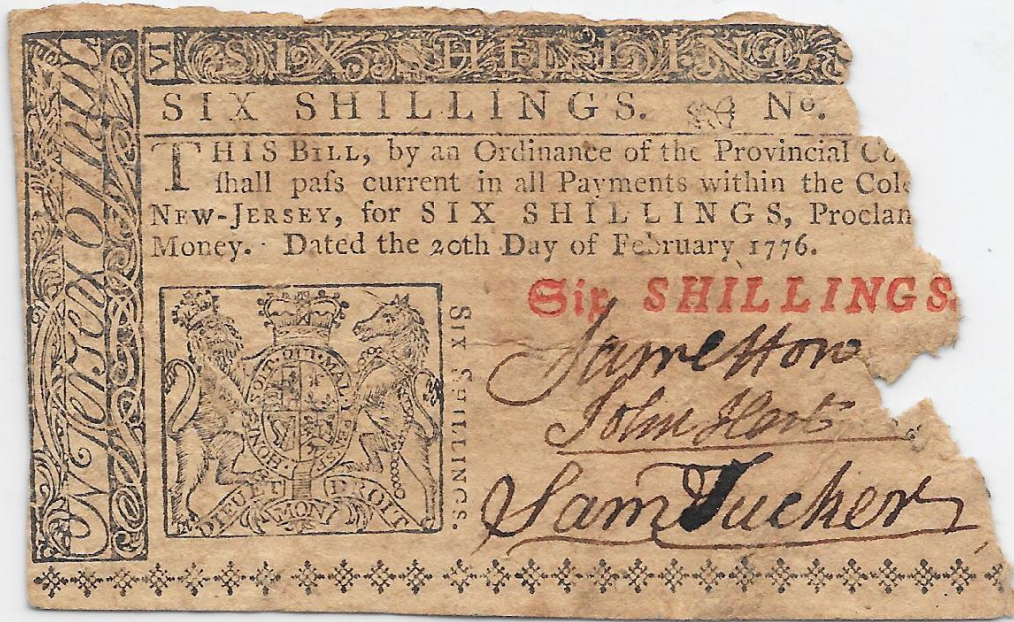 N. Jersey 6 Shill
VI SIX SHILLING
SIX SHILLINGS. No.
THIS BILL, by an Ordinance of the Provincial Co
ſhall paſs current in all Payments within the Col
NEW-JERSEY, for SIX SHILLINGS, Proclam
Money. Dated the 20th Day of February 1776.
Six SHILLINGS.
HONI·SOIT·QUI·MAL·Y·PENSE
DIEU ET MON DROIT
SIX SHILLINGS.
John Hart
Sam Tucker